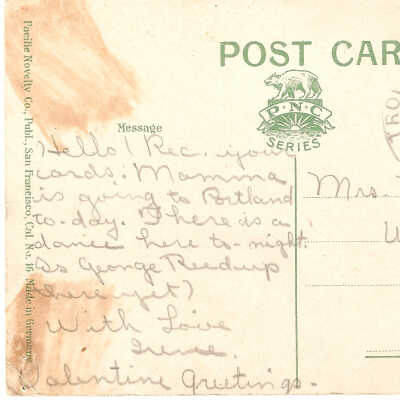 POST CAR
P.N.C.
SERIES
Message
Pacific Novelty Co., Publ., San Francisco, Cal. No. 16 Made in Germany
Hello! Rec. your
cards. Mamma
is going to Portland
to-day. There is a
dance here to-night.
Is George Reed up
there yet?
With Love
Irene.
Valentine Greetings.
Mrs.
TRO